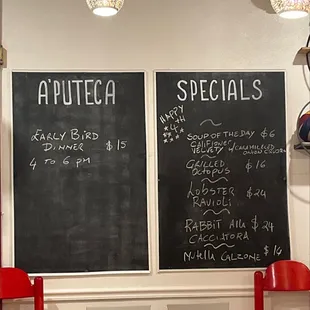 A'PUTECA
EARLY BIRD
DINNER $15
4 TO 6 PM
SPECIALS
HAPPY
4th
SOUP OF THE DAY $6
CAULIFLOWER
VELVETY W/CARAMELIZED
ONION
GRILLED
OCTOPUS $16
LOBSTER
RAVIOLI $24
RABBIT ALLA
CACCIATORA $24
NUTELLA CALZONE $14